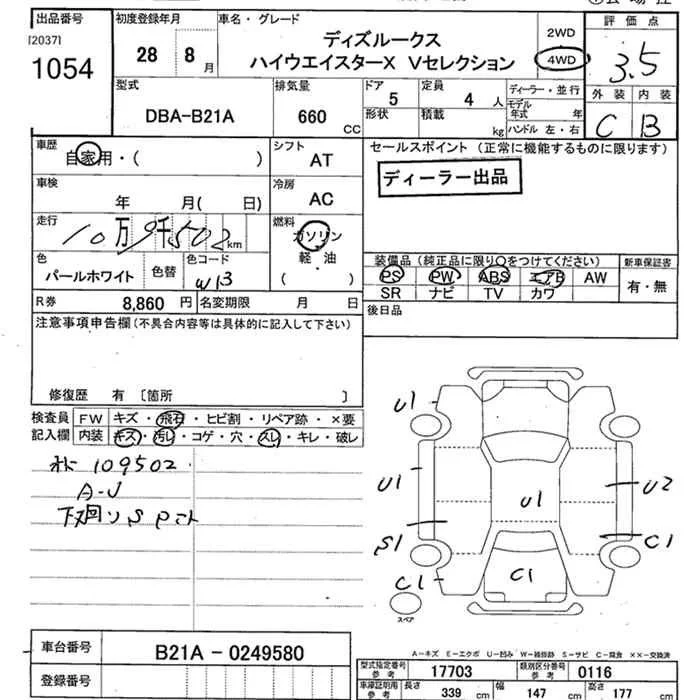 出品番号 初度登録年月 車名・グレード 評価点
[2037]
1054 28 8月 ディズルークス 2WD 3.5
ハイウエイスターX Vセレクション 4WD
型式 排気量 ドア 定員 ディーラー・並行 外装 内装
DBA-B21A 660 CC 5 4人 モデル年式 年 C B
形状 積載 kg ハンドル 左・右
車歴 自家用・( ) シフト AT セールスポイント (正常に機能するものに限ります)
車検 年 月( 日) 冷房 AC ディーラー出品
走行 10万9千502km 燃料 ガソリン
軽油
( )
色 パールホワイト 色替 色コード W13
装備品(純正品に限り○をつけてください) 新車保証書
PS PW ABS エアB AW 有・無
SR ナビ TV カワ
R券 8,860円 名変期限 月 日 後日品
注意事項申告欄(不具合内容等は具体的に記入して下さい)
修復歴 有 [箇所 ]
検査員 FW キズ・飛石・ヒビ割・リペア跡・×要
記入欄 内装 キズ・汚レ・コゲ・穴・スレ・キレ・破レ
109502
A-J
U1
U1 U1 U2
S1 C1
C1 C1
スペア
A-キズ E-エクボ U-凹み W-補修跡 S-サビ C-腐食 ××-交換済
車台番号 B21A-0249580
登録番号
型式指定番号 参考 17703 類別区分番号 参考 0116
車庫証明用 参考 長さ 339 cm 幅 147 cm 高さ 177 cm